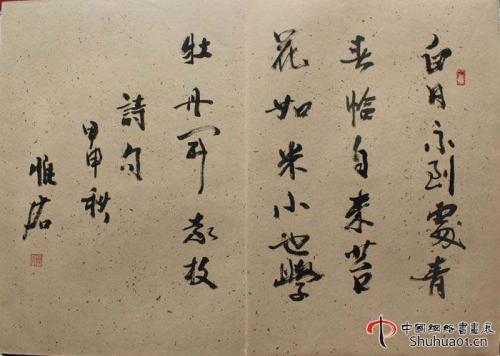 白日不到處青
春恰自來苔
花如米小也學
牡丹開袁枚
詩句
甲申秋
惟
中國網絡書畫展
Shuhuaot.cn